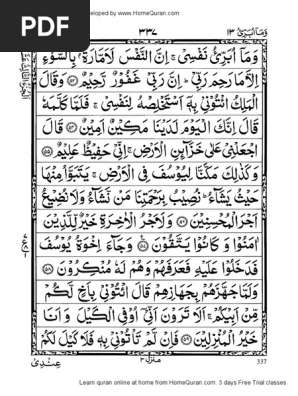 PDF
eloped by www.HomeQuran.com
وَمَآ اُبَرِّئُ ١٣
٣٣٧
وَمَآ اُبَرِّئُ نَفْسِىْ ۚ اِنَّ النَّفْسَ لَاَمَّارَةٌۢ بِالسُّوْٓءِ
اِلَّا مَا رَحِمَ رَبِّىْ ؕ اِنَّ رَبِّىْ غَفُوْرٌ رَّحِيْمٌ ۝٥٣ وَقَالَ
الْمَلِكُ ائْتُوْنِىْ بِهٖٓ اَسْتَخْلِصْهُ لِنَفْسِىْ ۚ فَلَمَّا كَلَّمَهٗ
قَالَ اِنَّكَ الْيَوْمَ لَدَيْنَا مَكِيْنٌ اَمِيْنٌ ۝٥٤ قَالَ
اجْعَلْنِىْ عَلٰى خَزَآئِنِ الْاَرْضِ ۚ اِنِّىْ حَفِيْظٌ عَلِيْمٌ ۝٥٥
وَكَذٰلِكَ مَكَّنَّا لِيُوْسُفَ فِى الْاَرْضِ ۚ يَتَبَوَّاُ مِنْهَا
حَيْثُ يَشَآءُ ؕ نُصِيْبُ بِرَحْمَتِنَا مَنْ نَّشَآءُ وَلَا نُضِيْعُ
اَجْرَ الْمُحْسِنِيْنَ ۝٥٦ وَلَاَجْرُ الْاٰخِرَةِ خَيْرٌ لِّلَّذِيْنَ
اٰمَنُوْا وَكَانُوْا يَتَّقُوْنَ ۝٥٧ وَجَآءَ اِخْوَةُ يُوْسُفَ
فَدَخَلُوْا عَلَيْهِ فَعَرَفَهُمْ وَهُمْ لَهٗ مُنْكِرُوْنَ ۝٥٨
وَلَمَّا جَهَّزَهُمْ بِجَهَازِهِمْ قَالَ ائْتُوْنِىْ بِاَخٍ لَّكُمْ
مِّنْ اَبِيْكُمْ ۚ اَلَا تَرَوْنَ اَنِّىْٓ اُوْفِى الْكَيْلَ وَاَنَا
خَيْرُ الْمُنْزِلِيْنَ ۝٥٩ فَاِنْ لَّمْ تَاْتُوْنِىْ بِهٖ فَلَا كَيْلَ لَكُمْ
عِنْدِىْ
منزل ٣
337
Learn quran online at home from HomeQuran.com. 3 days Free Trial classes